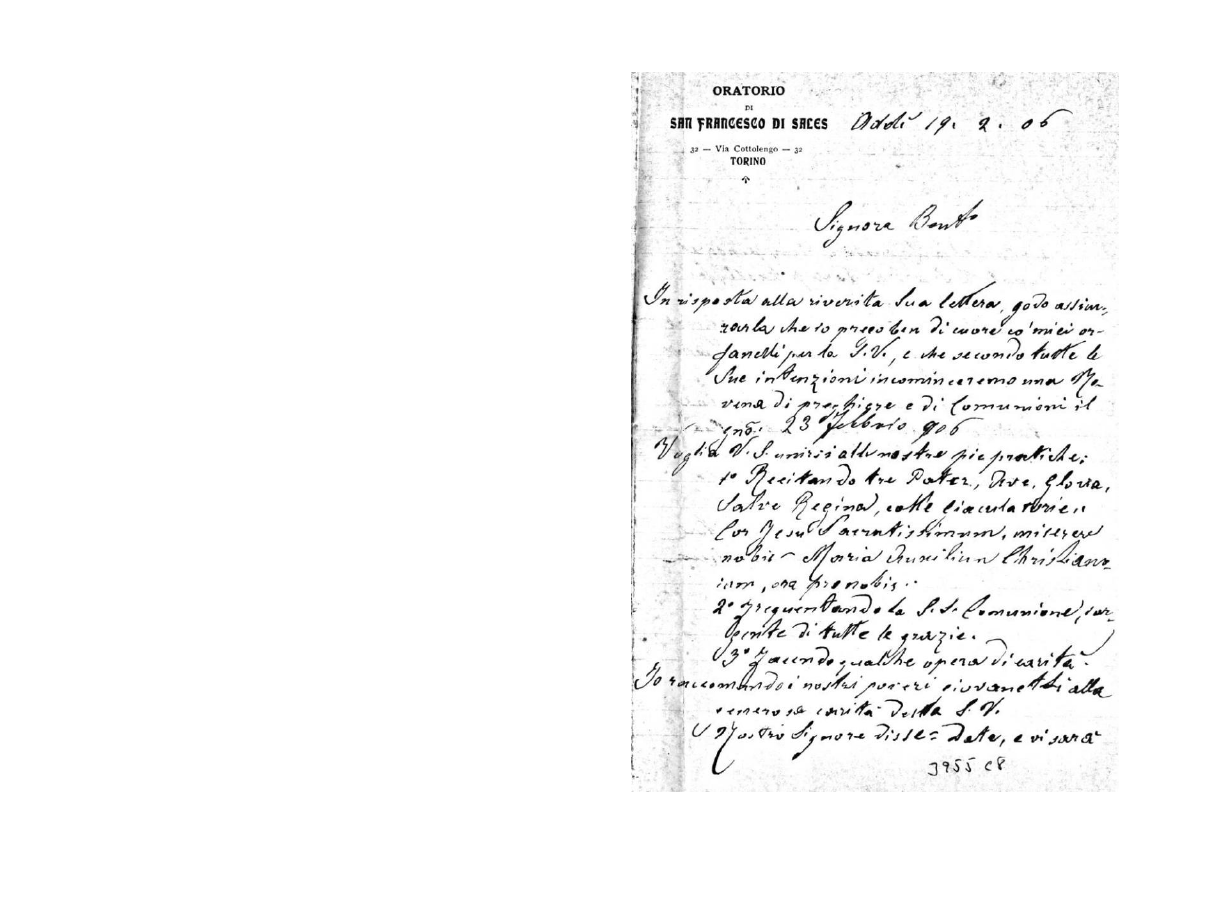 ORATORIO
DI
SAN FRANCESCO DI SALES
32 — Via Cottolengo — 32
TORINO
Addì 19. 2. 06
Signora Benta
In risposta alla riverita Sua lettera, godo assicu-
rarla che io prego ben di cuore co' miei or-
fanelli per la S.V., e che secondo tutte le
Sue intenzioni incominceremo una No-
vena di preghiere e di Comunioni il
gno: 23 Febbraio 906
Voglia V. S. unirsi alle nostre pie pratiche:
1º Recitando tre Pater, Ave, Gloria,
Salve Regina, colle Giaculatorie:
Cor Jesu Sacratissimum, miserere
nobis - Maria Auxilium Christiano-
rum, ora pro nobis.
2º Frequentando la S.S. Comunione, sor-
gente di tutte le grazie.
3º Facendo qualche opera di carità.
Io raccomando i nostri poveri giovanetti alla
generosa carità della S. V.
Nostro Signore disse = Date, e vi sarà
3955 C8